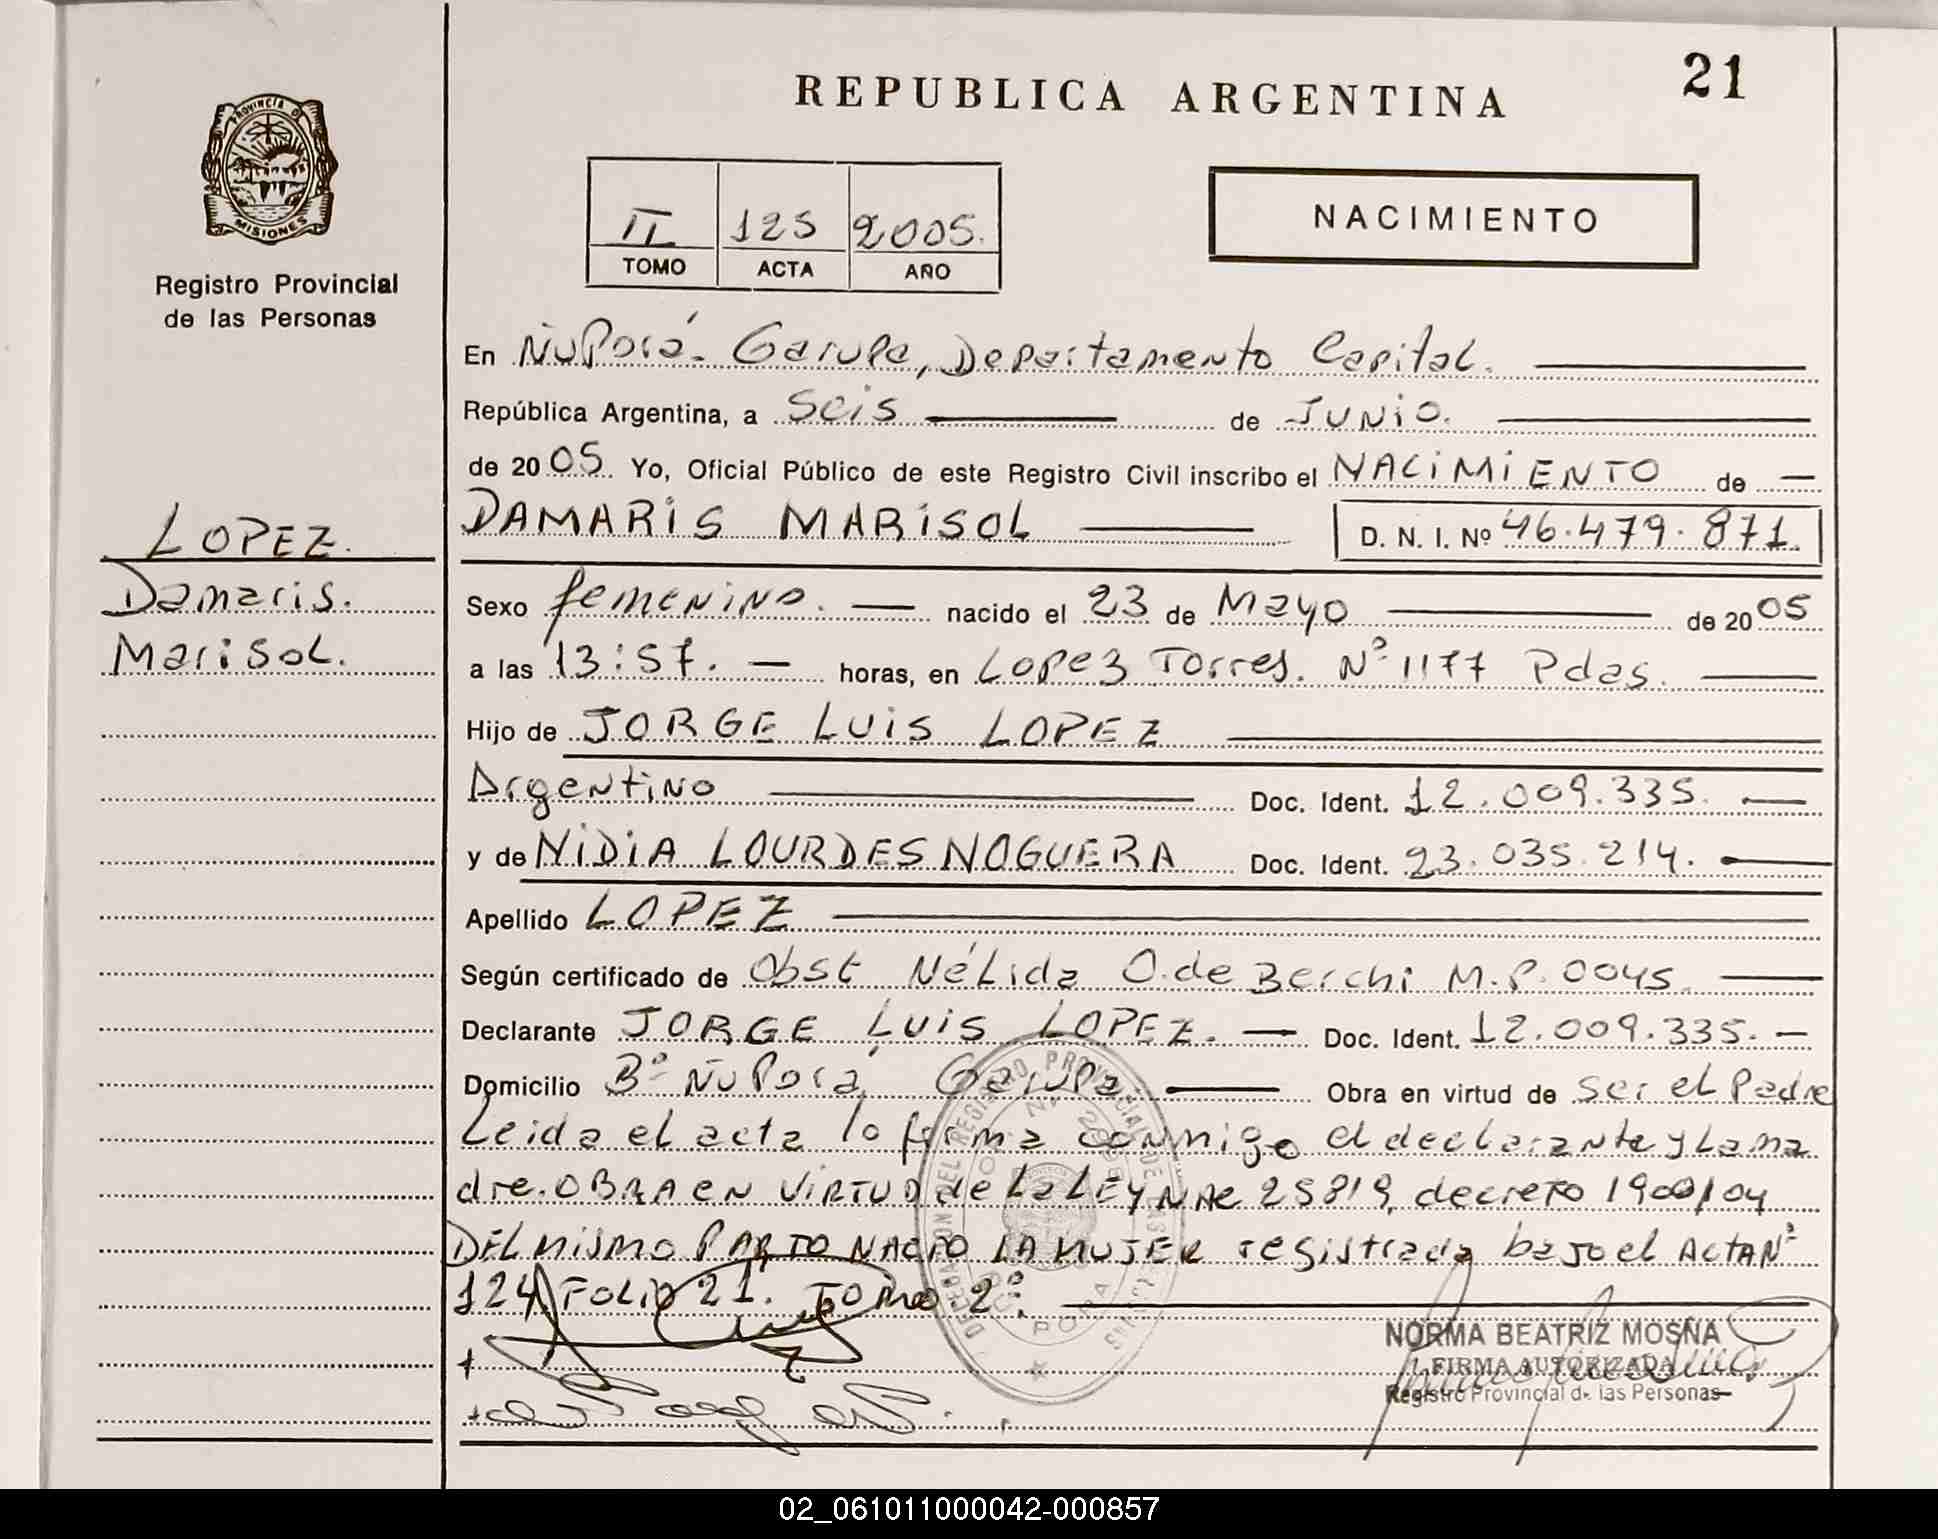 21
REPUBLICA ARGENTINA
PROVINCIA D
MISIONES
Registro Provincial
de las Personas
II 125 2005.
TOMO ACTA AÑO
NACIMIENTO
En Ñu Porá - Garupa, Departamento Capital.
República Argentina, a Seis de JUNIO.
de 2005 Yo, Oficial Público de este Registro Civil inscribo el NACIMIENTO de
DAMARIS MARISOL D. N. I. Nº 46.479.871.
LOPEZ.
Damaris.
Marisol.
Sexo femenino. nacido el 23 de Mayo de 2005
a las 13:57. horas, en Lopez Torres. Nº 1177 Pdas.
Hijo de JORGE LUIS LOPEZ
Argentino Doc. Ident. 12.009.335.
y de NIDIA LOURDES NOGUERA Doc. Ident. 23.035.214.
Apellido LOPEZ
Según certificado de Obst Nélida O. de Berchi M.P. 0045
Declarante JORGE LUIS LOPEZ. Doc. Ident. 12.009.335.
Domicilio Bº Ñu Porá Garupa. Obra en virtud de ser el Padre
Leida el acta lo firma conmigo el declarante y La ma
dre. OBRA EN VIRTUD de La LEY 25819, decreto 1900/04
DEL MISMO PARTO NACIO LA MUJER registrada bajo el ACTA Nº
124 FOLIO 21. TOMO 2º.
NORMA BEATRIZ MOSNA
FIRMA AUTORIZADA
Registro Provincial de las Personas
02_061011000042-000857